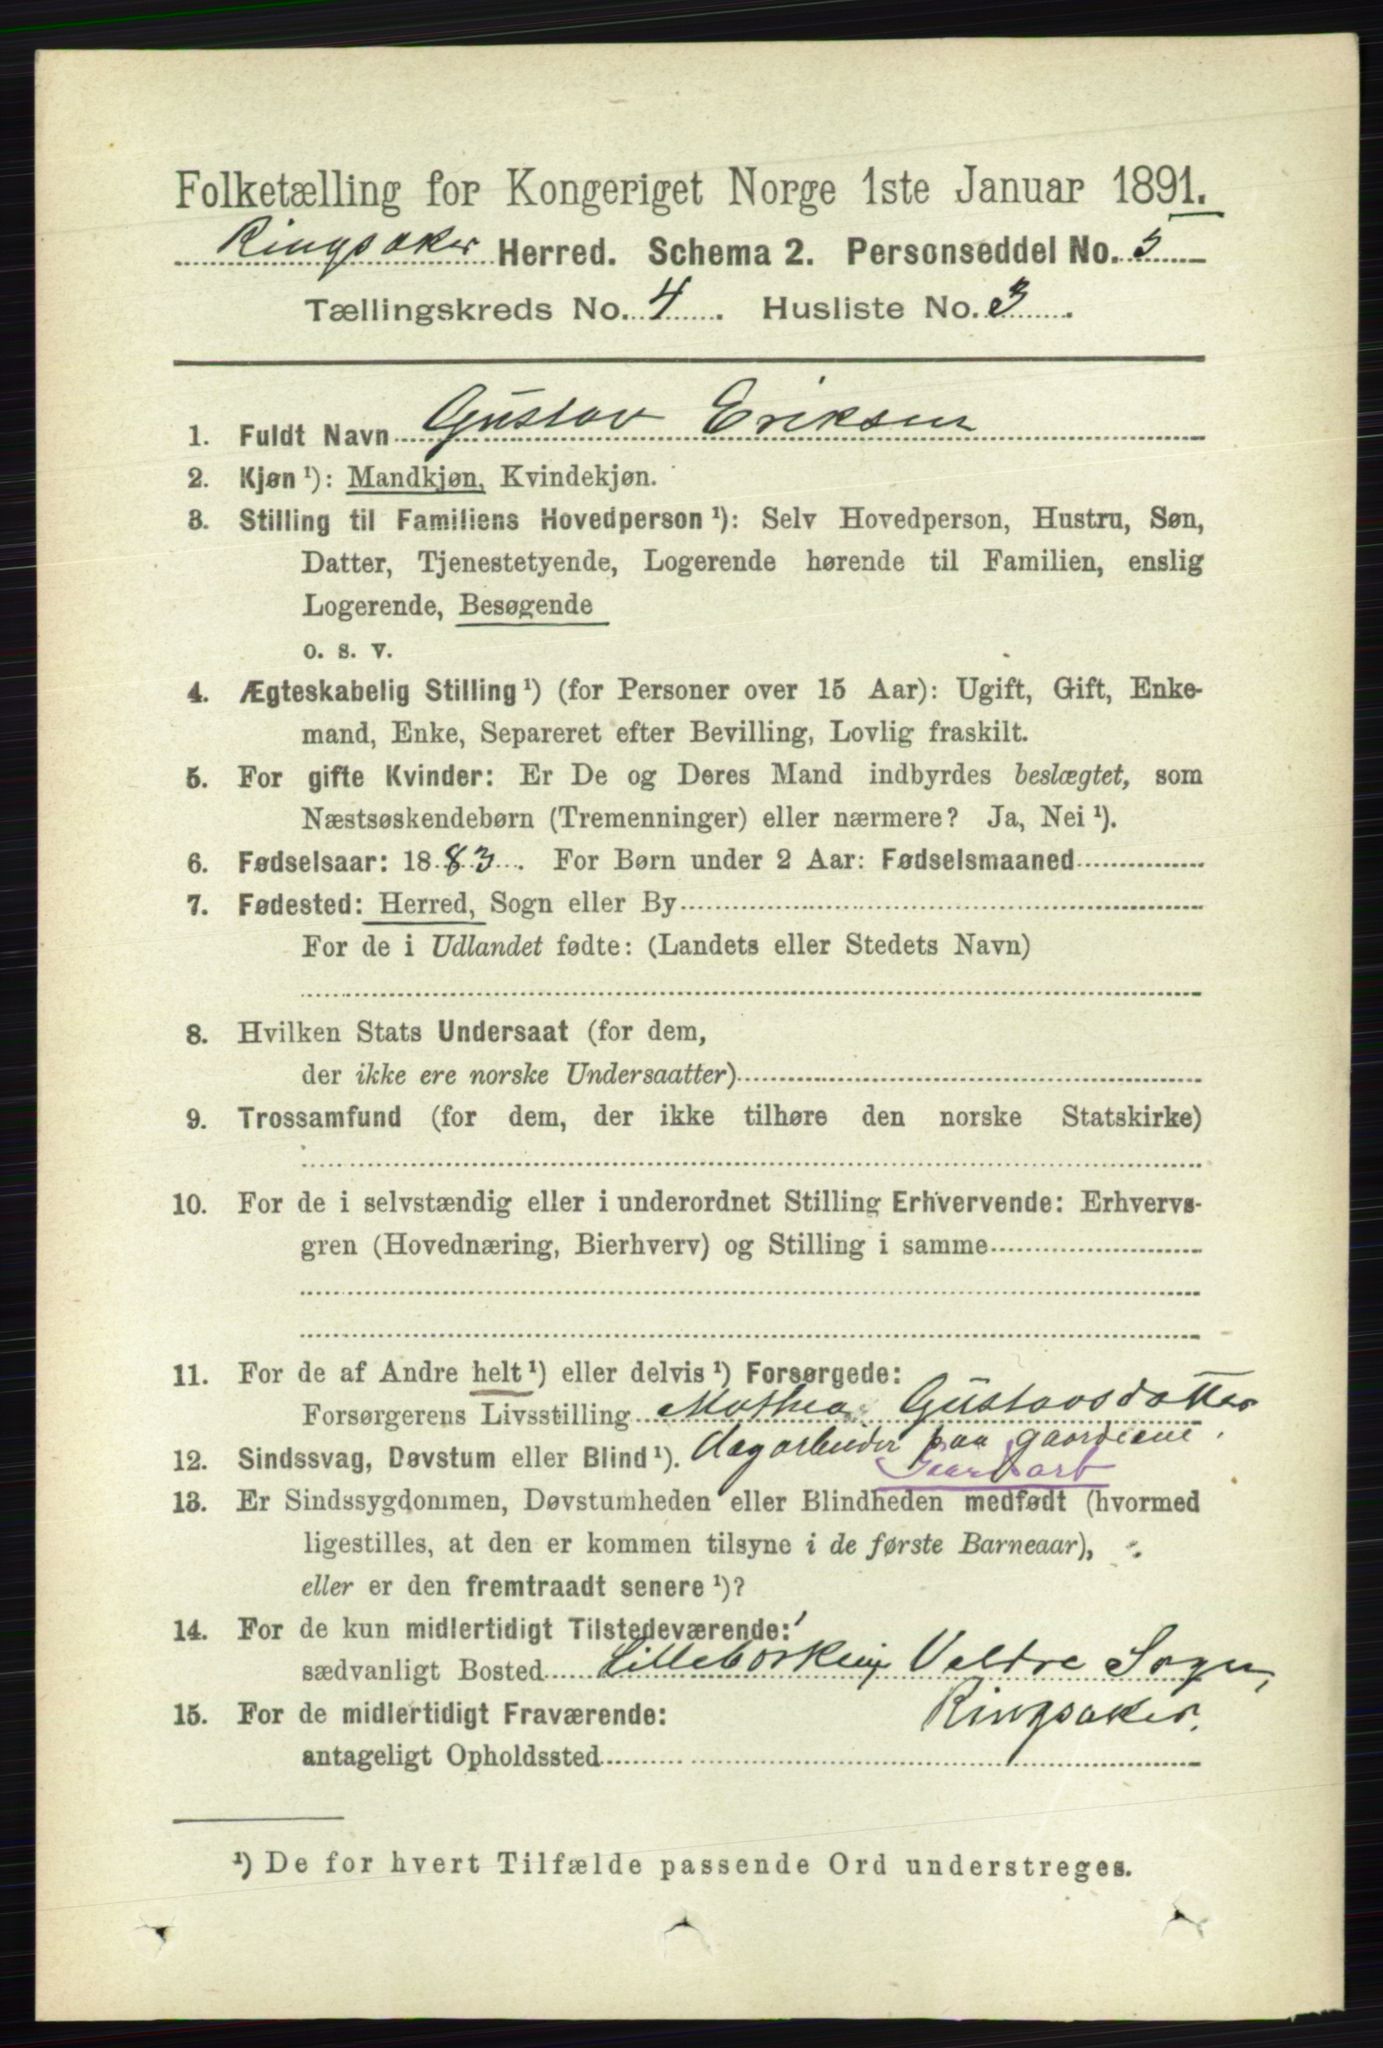 Folketælling for Kongeriget Norge 1ste Januar 1891.
Ringsaker Herred. Schema 2. Personseddel No. 5
Tællingskreds No. 4. Husliste No. 3.
1. Fuldt Navn Gustav Eriksen
2. Kjøn ¹): Mandkjøn, Kvindekjøn.
3. Stilling til Familiens Hovedperson ¹): Selv Hovedperson, Hustru, Søn,
Datter, Tjenestetyende, Logerende hørende til Familien, enslig
Logerende, Besøgende
o. s. v.
4. Ægteskabelig Stilling ¹) (for Personer over 15 Aar): Ugift, Gift, Enke-
mand, Enke, Separeret efter Bevilling, Lovlig fraskilt.
5. For gifte Kvinder: Er De og Deres Mand indbyrdes beslægtet, som
Næstsøskendebørn (Tremenninger) eller nærmere? Ja, Nei ¹).
6. Fødselsaar: 1883. For Børn under 2 Aar: Fødselsmaaned
7. Fødested: Herred, Sogn eller By
For de i Udlandet fødte: (Landets eller Stedets Navn)
8. Hvilken Stats Undersaat (for dem,
der ikke ere norske Undersaatter)
9. Trossamfund (for dem, der ikke tilhøre den norske Statskirke)
10. For de i selvstændig eller i underordnet Stilling Erhvervende: Erhvervs-
gren (Hovednæring, Bierhverv) og Stilling i samme
11. For de af Andre helt ¹) eller delvis ¹) Forsørgede:
Forsørgerens Livsstilling Mathea Gustavsdatter
12. Sindssvag, Døvstum eller Blind ¹). dagarbeider paa gaardene.
Gaardsarb
13. Er Sindssygdommen, Døvstumheden eller Blindheden medfødt (hvormed
ligestilles, at den er kommen tilsyne i de første Barneaar),
eller er den fremtraadt senere ¹)?
14. For de kun midlertidigt Tilstedeværende:
sædvanligt Bosted Veldre Sogn,
Ringsaker.
15. For de midlertidigt Fraværende:
antageligt Opholdssted
¹) De for hvert Tilfælde passende Ord understreges.